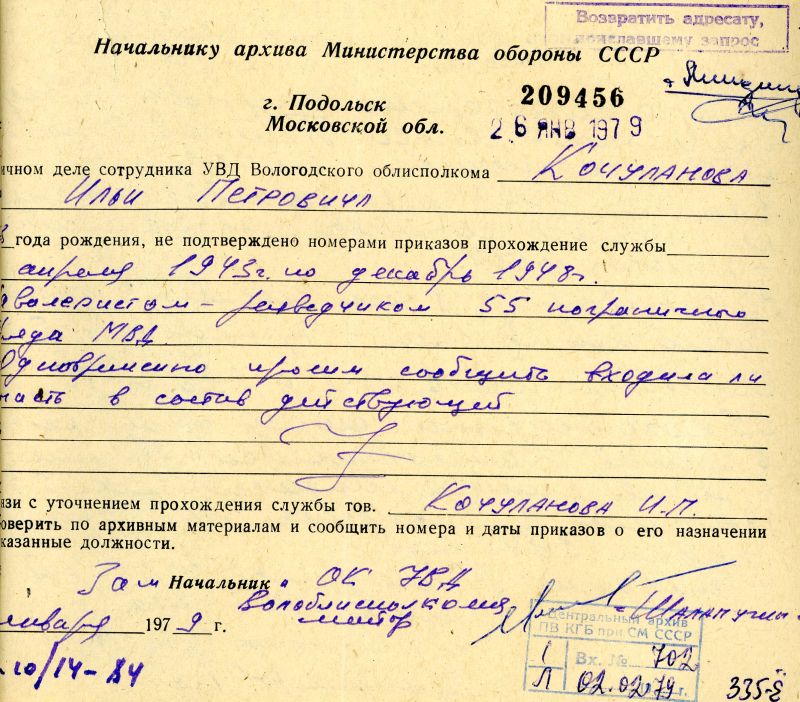 Возвратить адресату,
приславшему запрос
Начальнику архива Министерства обороны СССР
г. Подольск
Московской обл.
209456
26 ЯНВ 1979
ичном деле сотрудника УВД Вологодского облисполкома Кочуланова
Ильи Петровича
года рождения, не подтверждено номерами приказов прохождение службы
апреля 1943г. по декабрь 1948г.
валеристом – разведчиком 55 пограничного
ряда МВД.
Одновременно просим сообщить входила ли
часть в состав действующей
язи с уточнением прохождения службы тов. Кочуланова И.П.
оверить по архивным материалам и сообщить номера и даты приказов о его назначении
казанные должности.
Зам Начальник ОК УВД
Волоблисполкома
января 1979 г.
Центральный архив
ПВ КГБ при СМ СССР
1 Вх. № 702
Л 02.02.79 г.
10/14-84
335-Е